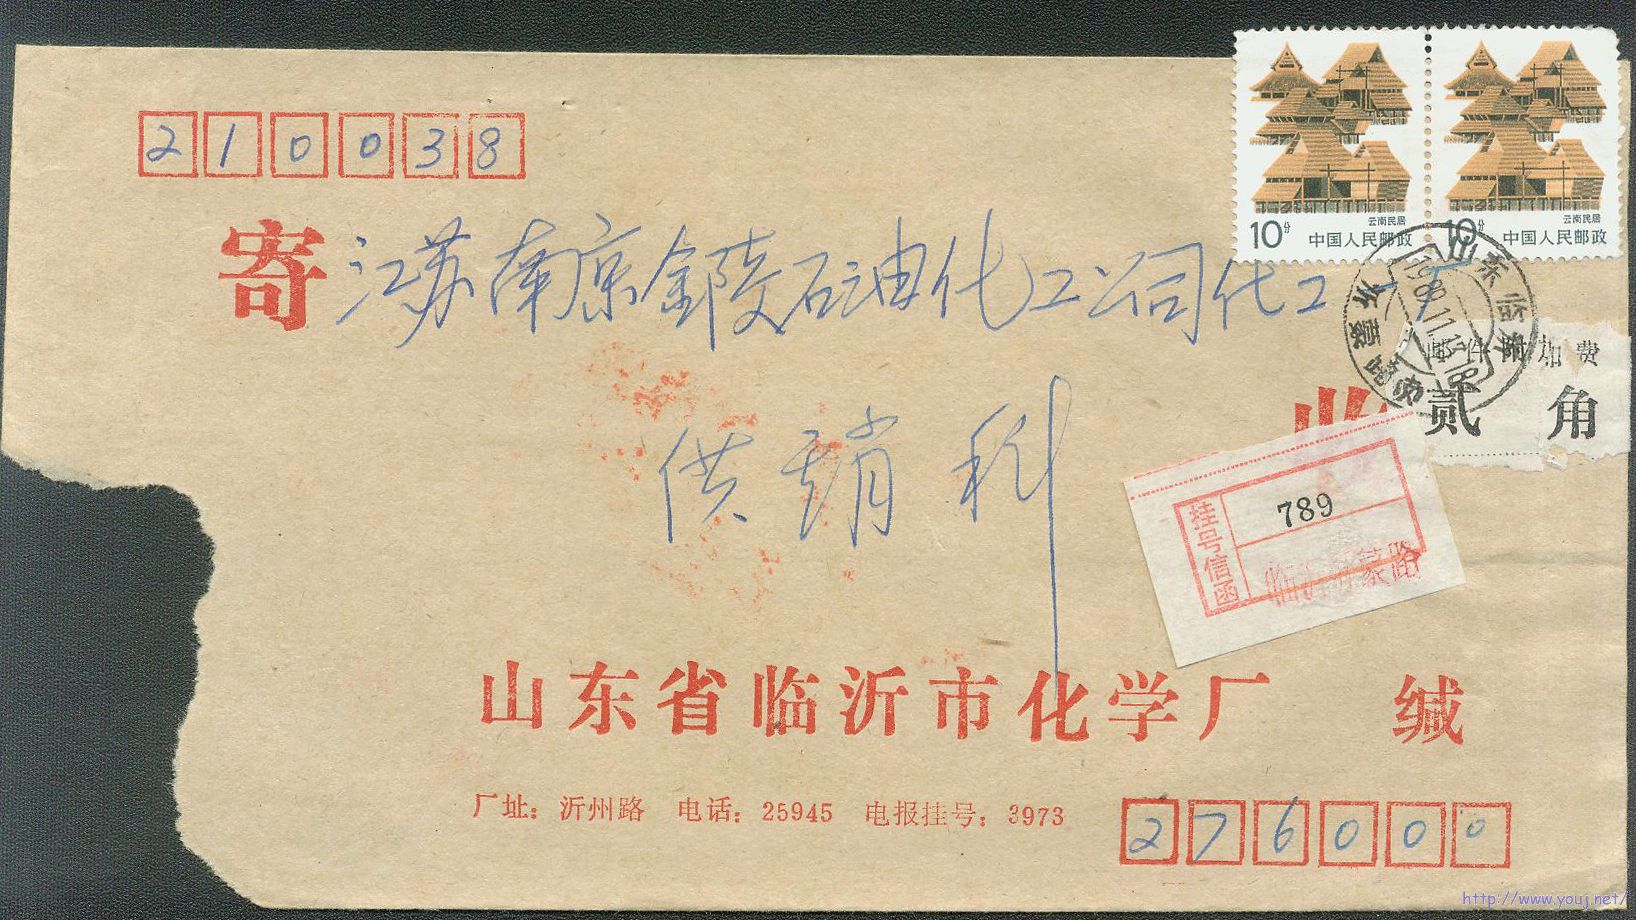 210038
云南民居
10分 中国人民邮政
云南民居
10分 中国人民邮政
寄 江苏南京金陵石油化工公司化工厂
山东临沂
1989.11.15.18
加费
贰角
供销科
收
789
挂号信函
临沂沂蒙路
山东省临沂市化学厂 缄
厂址：沂州路 电话：25945 电报挂号：3973
276000
http://www.youj.net/